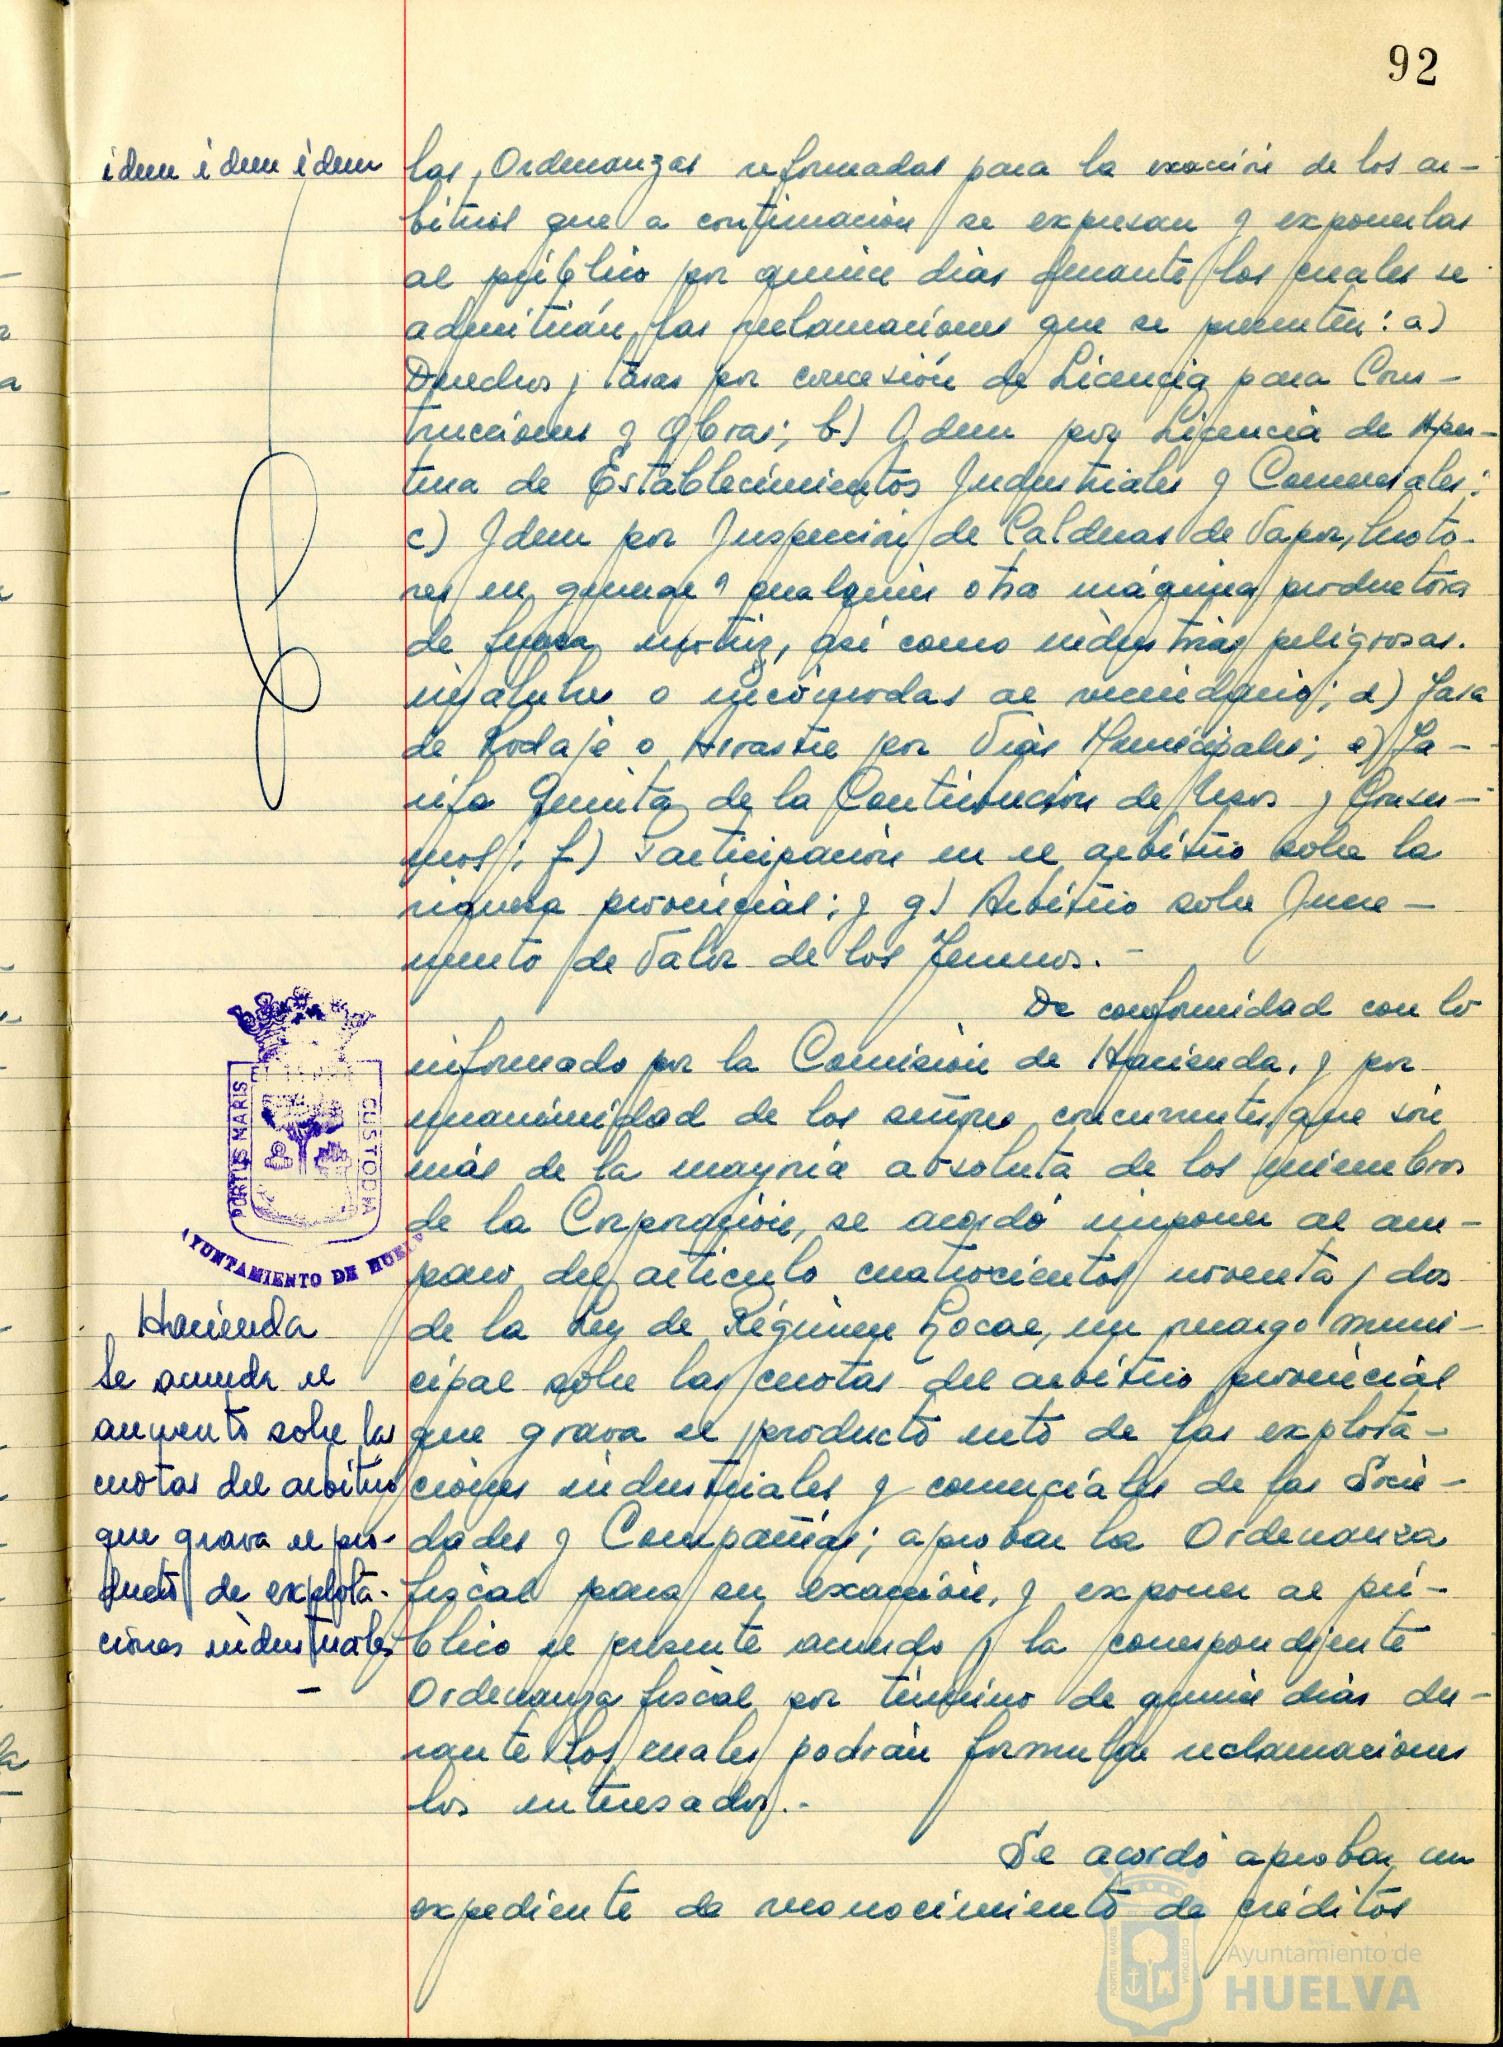 92
idem idem idem
las Ordenanzas reformadas para la exacción de los ar-
bitrios que a continuación se expresan y exponerlas
al público por quince días durante los cuales se
admitirán las reclamaciones que se presenten: a)
Derechos y tasas por concesión de Licencia para Cons-
trucciones y Obras; b) Idem por Licencia de Aper-
tura de Establecimientos Industriales y Comerciales;
c) Idem por Inspección de Calderas de Vapor, Moto-
res en general y cualquier otra máquina productora
de fuerza motriz, así como industrias peligrosas.
insalubres o incómodas al vecindario; d) Tasa
de Rodaje o Arrastre por Vías Municipales; e) Ta-
rifa Quinta de la Contribución de Usos y Consu-
mos; f) Participación en el arbitrio sobre la
riqueza provincial; y g) Arbitrio sobre Incre-
mento de Valor de los Terrenos.-
De conformidad con lo
informado por la Comisión de Hacienda, y por
unanimidad de los señores concurrentes, que son
más de la mayoría absoluta de los miembros
de la Corporación, se acordó imponer al am-
paro del artículo cuatrocientos noventa y dos
de la Ley de Régimen Local, un recargo muni-
cipal sobre las cuotas del arbitrio provincial
que grava el producto neto de las explota-
ciones industriales y comerciales de las Socie-
dades y Compañías; aprobar la Ordenanza
fiscal para su exacción, y exponer al pú-
blico el presente acuerdo y la correspondiente
Ordenanza fiscal por término de quince días du-
rante los cuales podrán formular reclamaciones
los interesados.-
Se acordó aprobar un
expediente de reconocimiento de créditos
PORTUS MARIS
CUSTODIA
AYUNTAMIENTO DE HUELVA
Hacienda
Se acuerda el
aumento sobre las
cuotas del arbitrio
que grava el pro-
ducto de explota-
ciones industriales
-
PORTUS MARIS
CUSTODIA
Ayuntamiento de
HUELVA